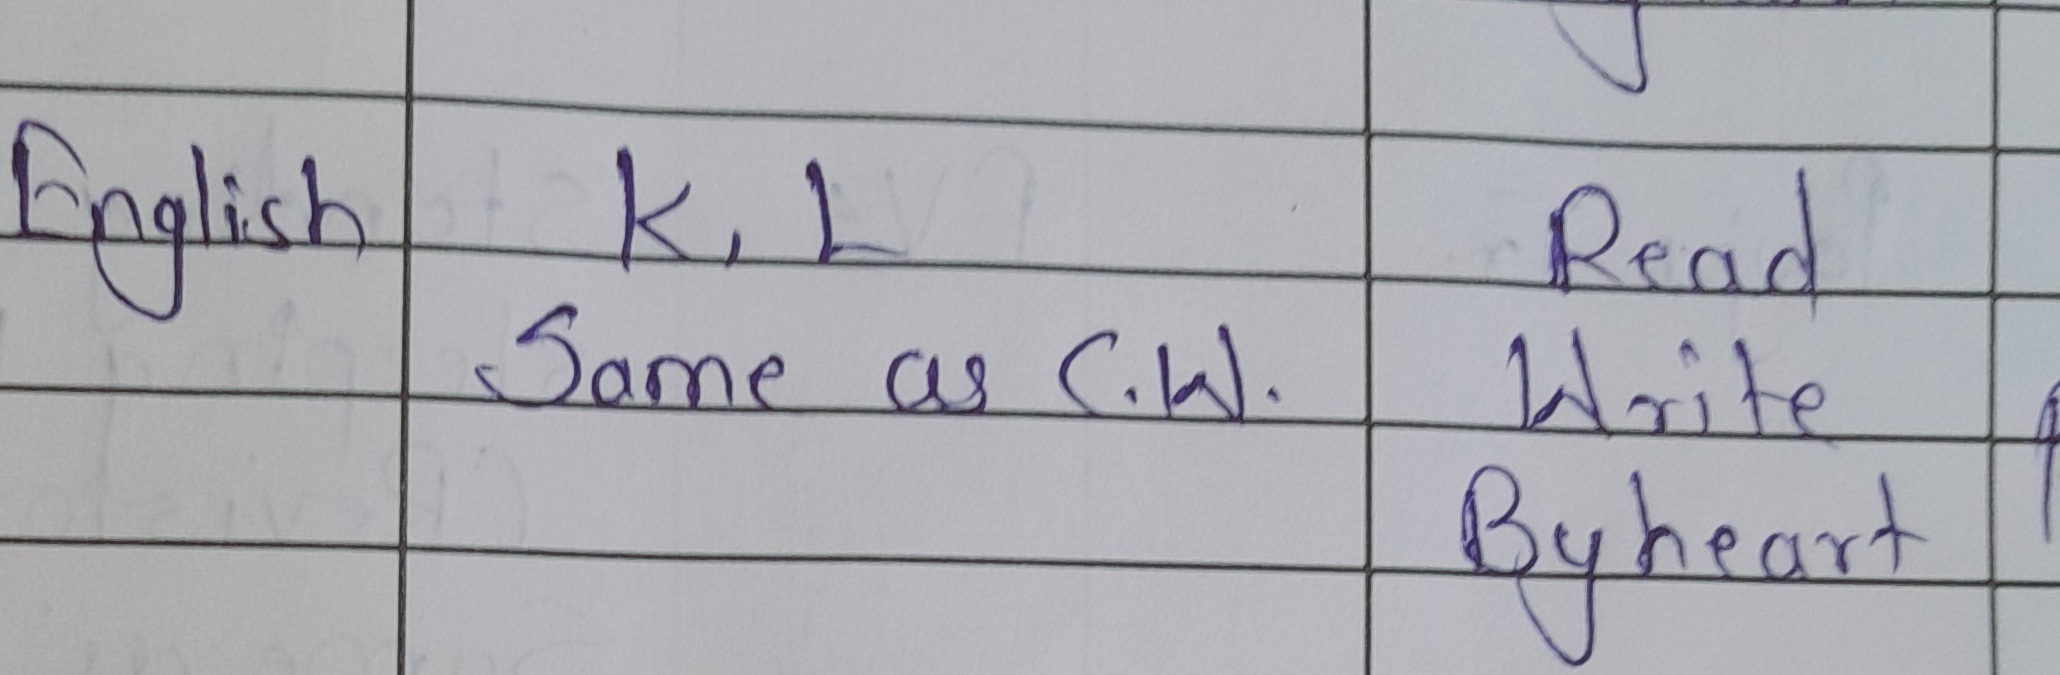 English K, L Read
Same as C.W. Write
By heart